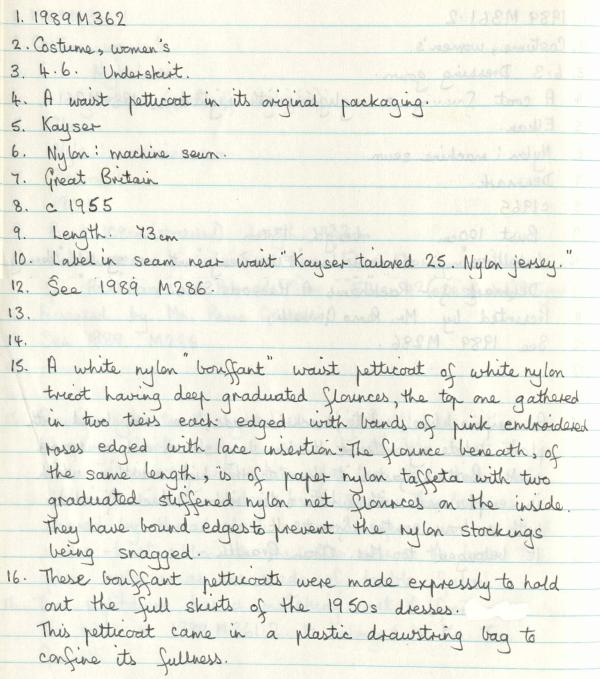 1. 1989 M362
2. Costume, women's
3. 4.6. Underskirt.
4. A waist petticoat in its original packaging.
5. Kayser
6. Nylon: machine sewn.
7. Great Britain
8. c 1955
9. Length. 73cm
10. Label in seam near waist "Kayser tailored 25. Nylon jersey."
12. See 1989 M286.
13.
14.
15. A white nylon "bouffant" waist petticoat of white nylon
tricot having deep graduated flounces, the top one gathered
in two tiers each edged with bands of pink embroidered
roses edged with lace insertion. The flounce beneath, of
the same length, is of paper nylon taffeta with two
graduated stiffened nylon net flounces on the inside.
They have bound edges to prevent the nylon stockings
being snagged.
16. These bouffant petticoats were made expressly to hold
out the full skirts of the 1950s dresses.
This petticoat came in a plastic drawstring bag to
confine its fullness.